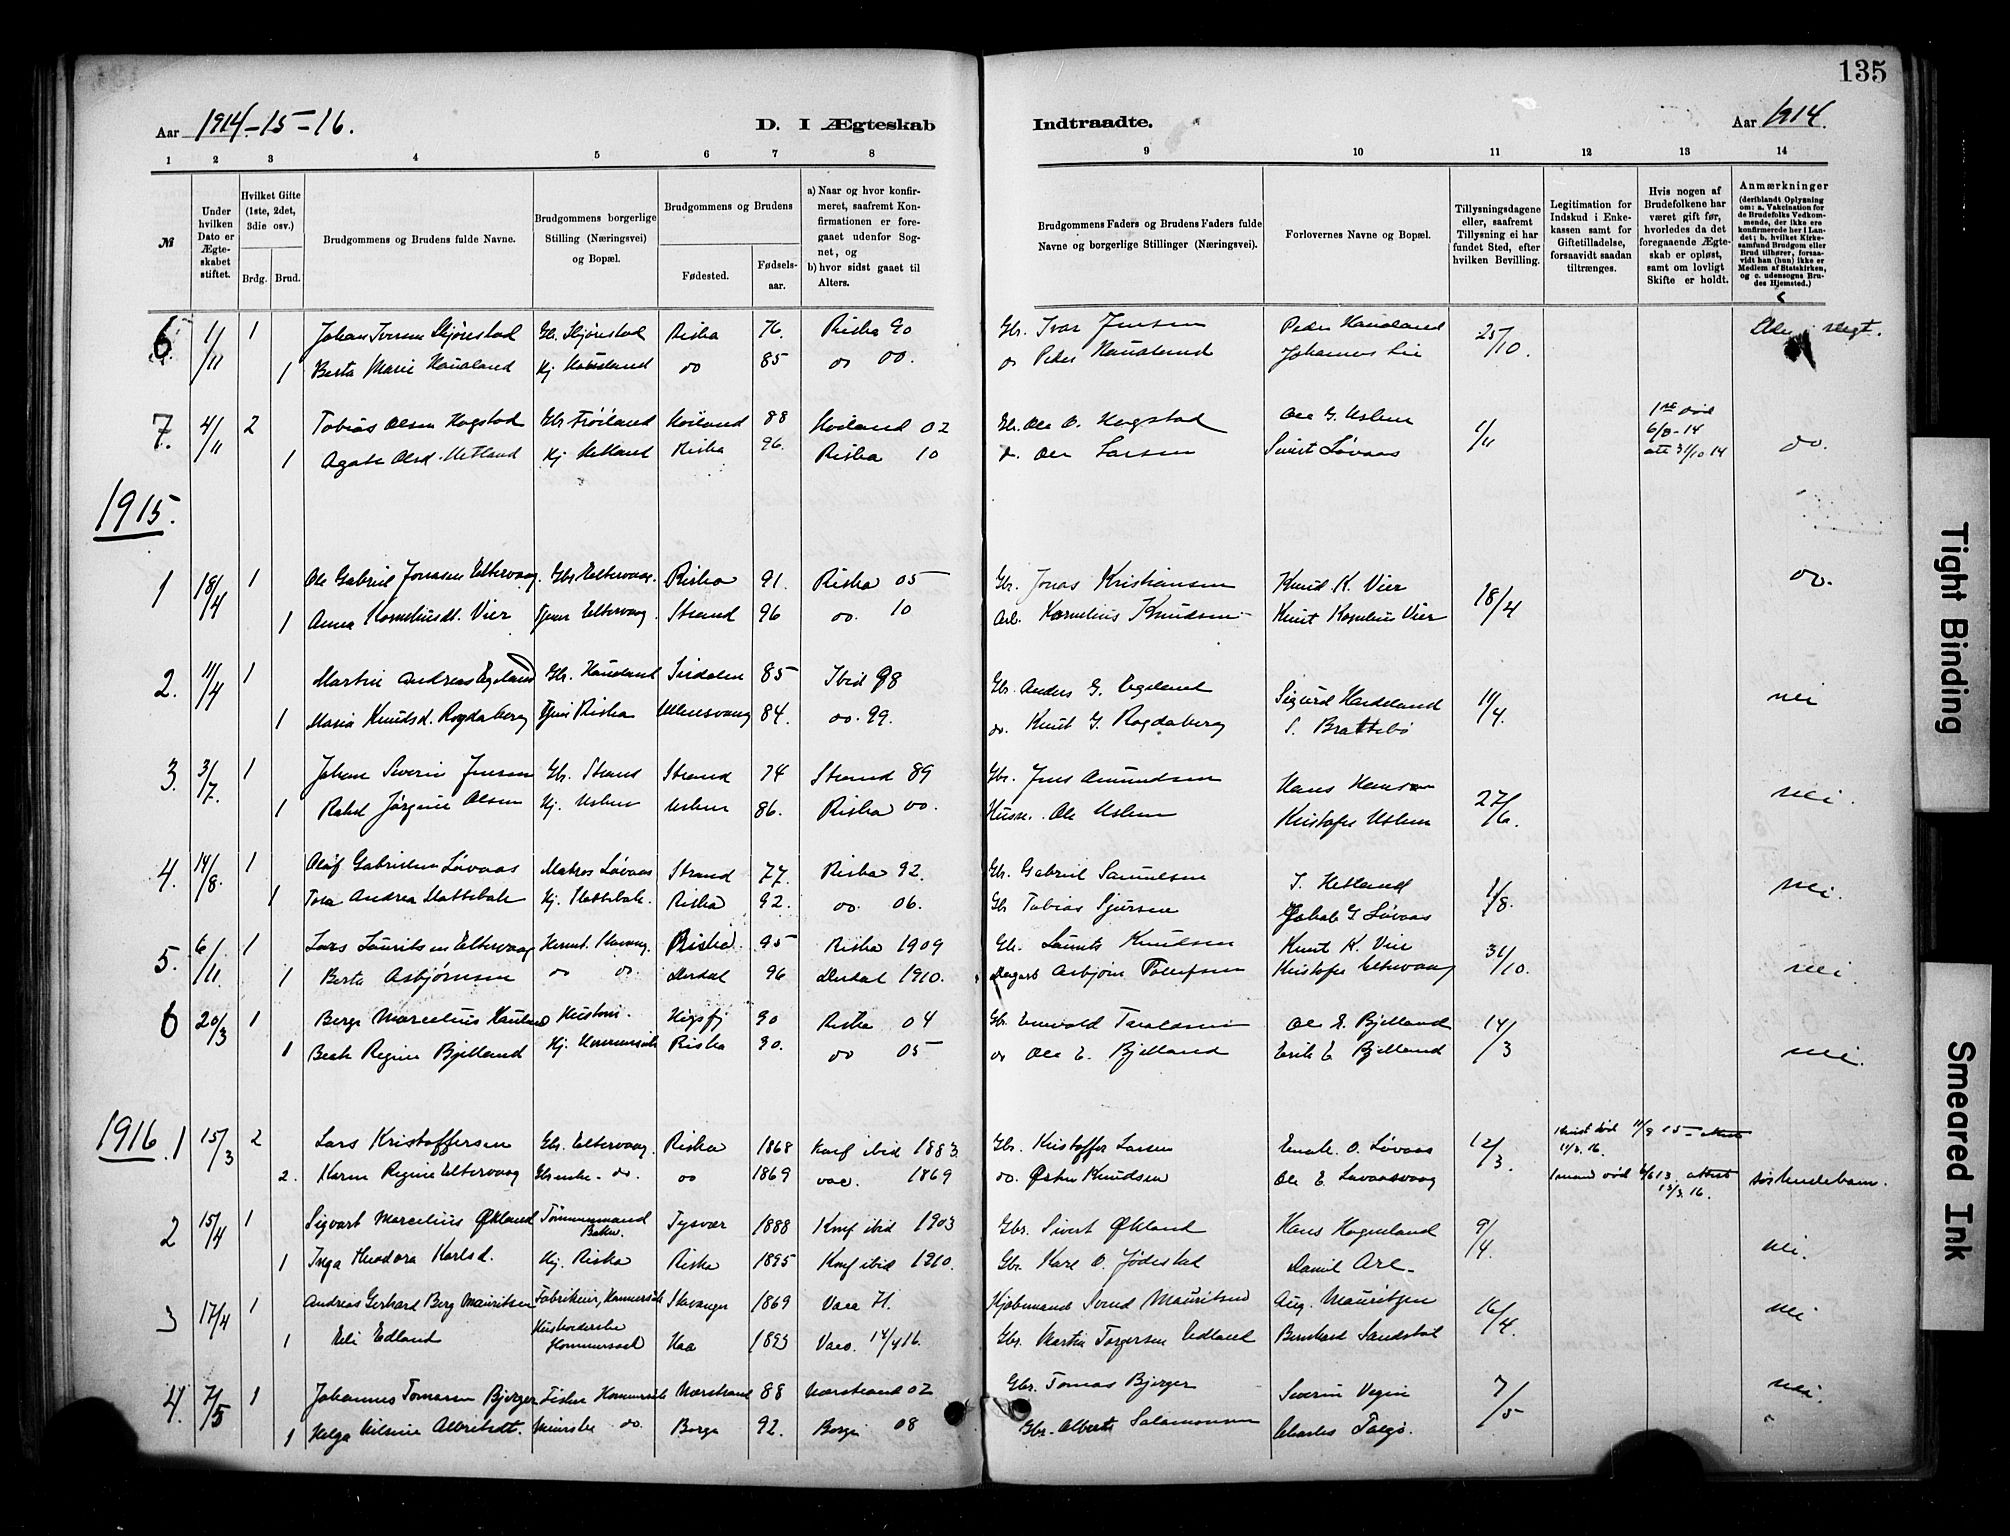 135
Aar 1914-15-16.
D. I Ægteskab
Indtraadte.
Aar 1914.
1 2 3 4 5 6 7 8 9 10 11 12 13 14
№
Under hvilken Dato er Ægteskabet stiftet.
Hvilket Gifte (1ste, 2det, 3die osv.)
Brdg. Brud.
Brudgommens og Brudens fulde Navne.
Brudgommens borgerlige Stilling (Næringsvei) og Bopæl.
Brudgommens og Brudens
Fødested. Fødselsaar.
a) Naar og hvor konfirmeret, saafremt Konfirmationen er foregaaet udenfor Sognet, og
b) hvor sidst gaaet til Alters.
Brudgommens Faders og Brudens Faders fulde Navne og borgerlige Stillinger (Næringsvei).
Forlovernes Navne og Bopæl.
Tillysningsdagene eller, saafremt Tillysning ei har fundet Sted, efter hvilken Bevilling.
Legitimation for Indskud i Enkekassen samt for Giftetilladelse, forsaavidt saadan tiltrænges.
Hvis nogen af Brudefolkene har været gift før, hvorledes da det foregaaende Ægteskab er opløst, samt om lovligt Skifte er holdt.
Anmærkninger (deriblandt Oplysning om: a. Vakcination for de Brudefolks Vedkommende, der ikke ere konfirmerede her i Landet; b. hvilket Kirkesamfund Brudgom eller Brud tilhører, forsaavidt han (hun) ikke er Medlem af Statskirken, og c. udensogns Brudes Hjemsted.)
6 1/11 1 Johan Iversen Skjørestad Gbr. Skjørestad Riska 76 Riska 90 Gbr. Ivar Jensen Peder Haualand 25/10
1 Berta Marie Haualand Kj. Haualand do 85 do 00. do Peder Haualand Johannes Lie
7. 4/11 2 Tobias Olsen Hogstad Gbr. Frøiland Høiland 88 Høiland 02 Gbr. Ole O. Hogstad Ole G. Usken 1/11 1ste død 6/8-14 att 31/10 14 do.
1 Agate Olsd. Hetland Kj. Hetland Riska 96 Riska 10 do. Ole Larsen Sivert Løvaas
1915.
1 18/4 1 Ole Gabriel Jonasen Eltervaag Gbr. Eltervaag Riska 91. Riska 05 Gbr. Jonas Kristiansen Knud K. Vier 18/4 do.
1 Anna Korneliusdt. Vier Tjener Eltervaag Strand 96 do. 10 Arb. Kornelius Knudsen Knut Kornelius Vier
2. 11/4 1 Martin Andreas Egeland Gbr. Haualand Sirdalen 85 Ibid 98 Gbr. Anders G. Egeland Sigurd Hadeland 11/4. nei
1 Maria Knudsd. Rogdaberg Tjener Riska Ullensvang 84. do. 99. do. Knut G. Rogdaberg S. Brattebø
3. 3/7. 1 Johan Severin Jensen Gbr. Strand Strand 74 Strand 89 Gbr. Jens Amundsen Hans Hansen 27/6. nei.
1 Jørgine Olsen Kj. Usken Usken 86. Riska 00. Husm. Ole Usken Kristofer Usken
4. 14/8. 1 Oluf Gabrielsen Løvaas Matros Løvaas Strand 77. Riska 92. Gbr. Gabriel Samuelsen T. Hetland 1/8. nei.
1 Tora Andrea Hattebak Kj. Hattebak. Riska 92. do. 06. Gbr Tobias Sjursen Jakob G Løvaas
5. 6/11. 1 Lars Lauritsen Eltervaag Riska 95 Riska 1909 Gbr. Laurits Knutsen Knut K. Vier 31/10. nei
1 Berta Asbjørnsen do do. Dirdal 96 Dirdal 1910. Asbjørn Tollefsen Kristofer Eltervaag
6 20/3 1 Berge Marcelius Hauland Høgsfj 90 Riska 04 Gbr. Enevald Ole E. Bjelland 14/3
1 Beate Regine Bjelland Kj. Hommersak Riska 90. do 05 do Ole E. Bjelland Erik E Bjelland nei.
1916. 1 15/3 2 Lars Kristoffersen Gbr. Eltervaag. Riska 1868 Konf ibid 1883 Gbr. Kristoffer Larsen O. Løvaas 12/3. død 11/9 15 11/3. 16.
2. Karen Regine Eltervaag Gbr.enke - do. do 1869 1869 do. Østen Knudsen Ole E. Løvaasvaag død 6/6 13. attest 13/3. 16. søskendebarn.
2 15/4 1 Sigvart Marcelius Økland Tømmermand Tysvær 1888 Konf ibid 1903 Gbr. Sivert Økland Hans Hogenland 9/4. nei.
1 Inga Theodora Karlsd. Kj. Riska Riska 1895 Konf ibid 1910. Gbr. Karl O. Jødestad Daniel Arl-
3 17/4 1 Andreas Gerhard Berg Mauritzen Fabrikeier, Hommersak Stavanger 1869 Kjøbmand Svend Mauritzen Aug. Mauritzen 16/4. nei
1 Eli Edland Husholderske Hommersak Haa 1893 14/4 16. Gbr. Martin Torgersen Edland Bernhard Sandstøl
4. 7/5 1 Johannes Tomasen Bjerger Fisker Hommersak Nærstrand 88 Nærstrand 02 Gbr. Tomas Bjerger Severin 7/5 nei.
1 Helga Nilsine Albretsdt. do. Borge 92. Borge 08 Gbr. Albert Salamonsen Charles
Tight Binding
Smeared Ink